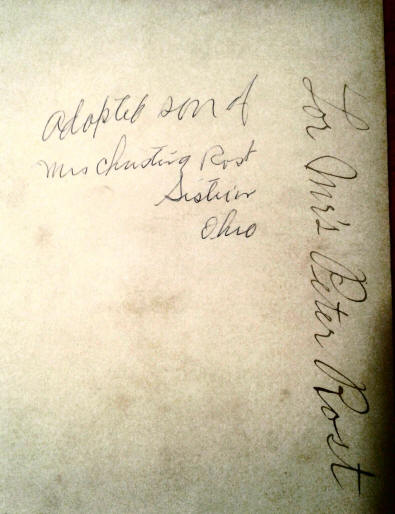 adopted son of
Mrs Christina Rost
Ohio
For Mr's Peter Rost